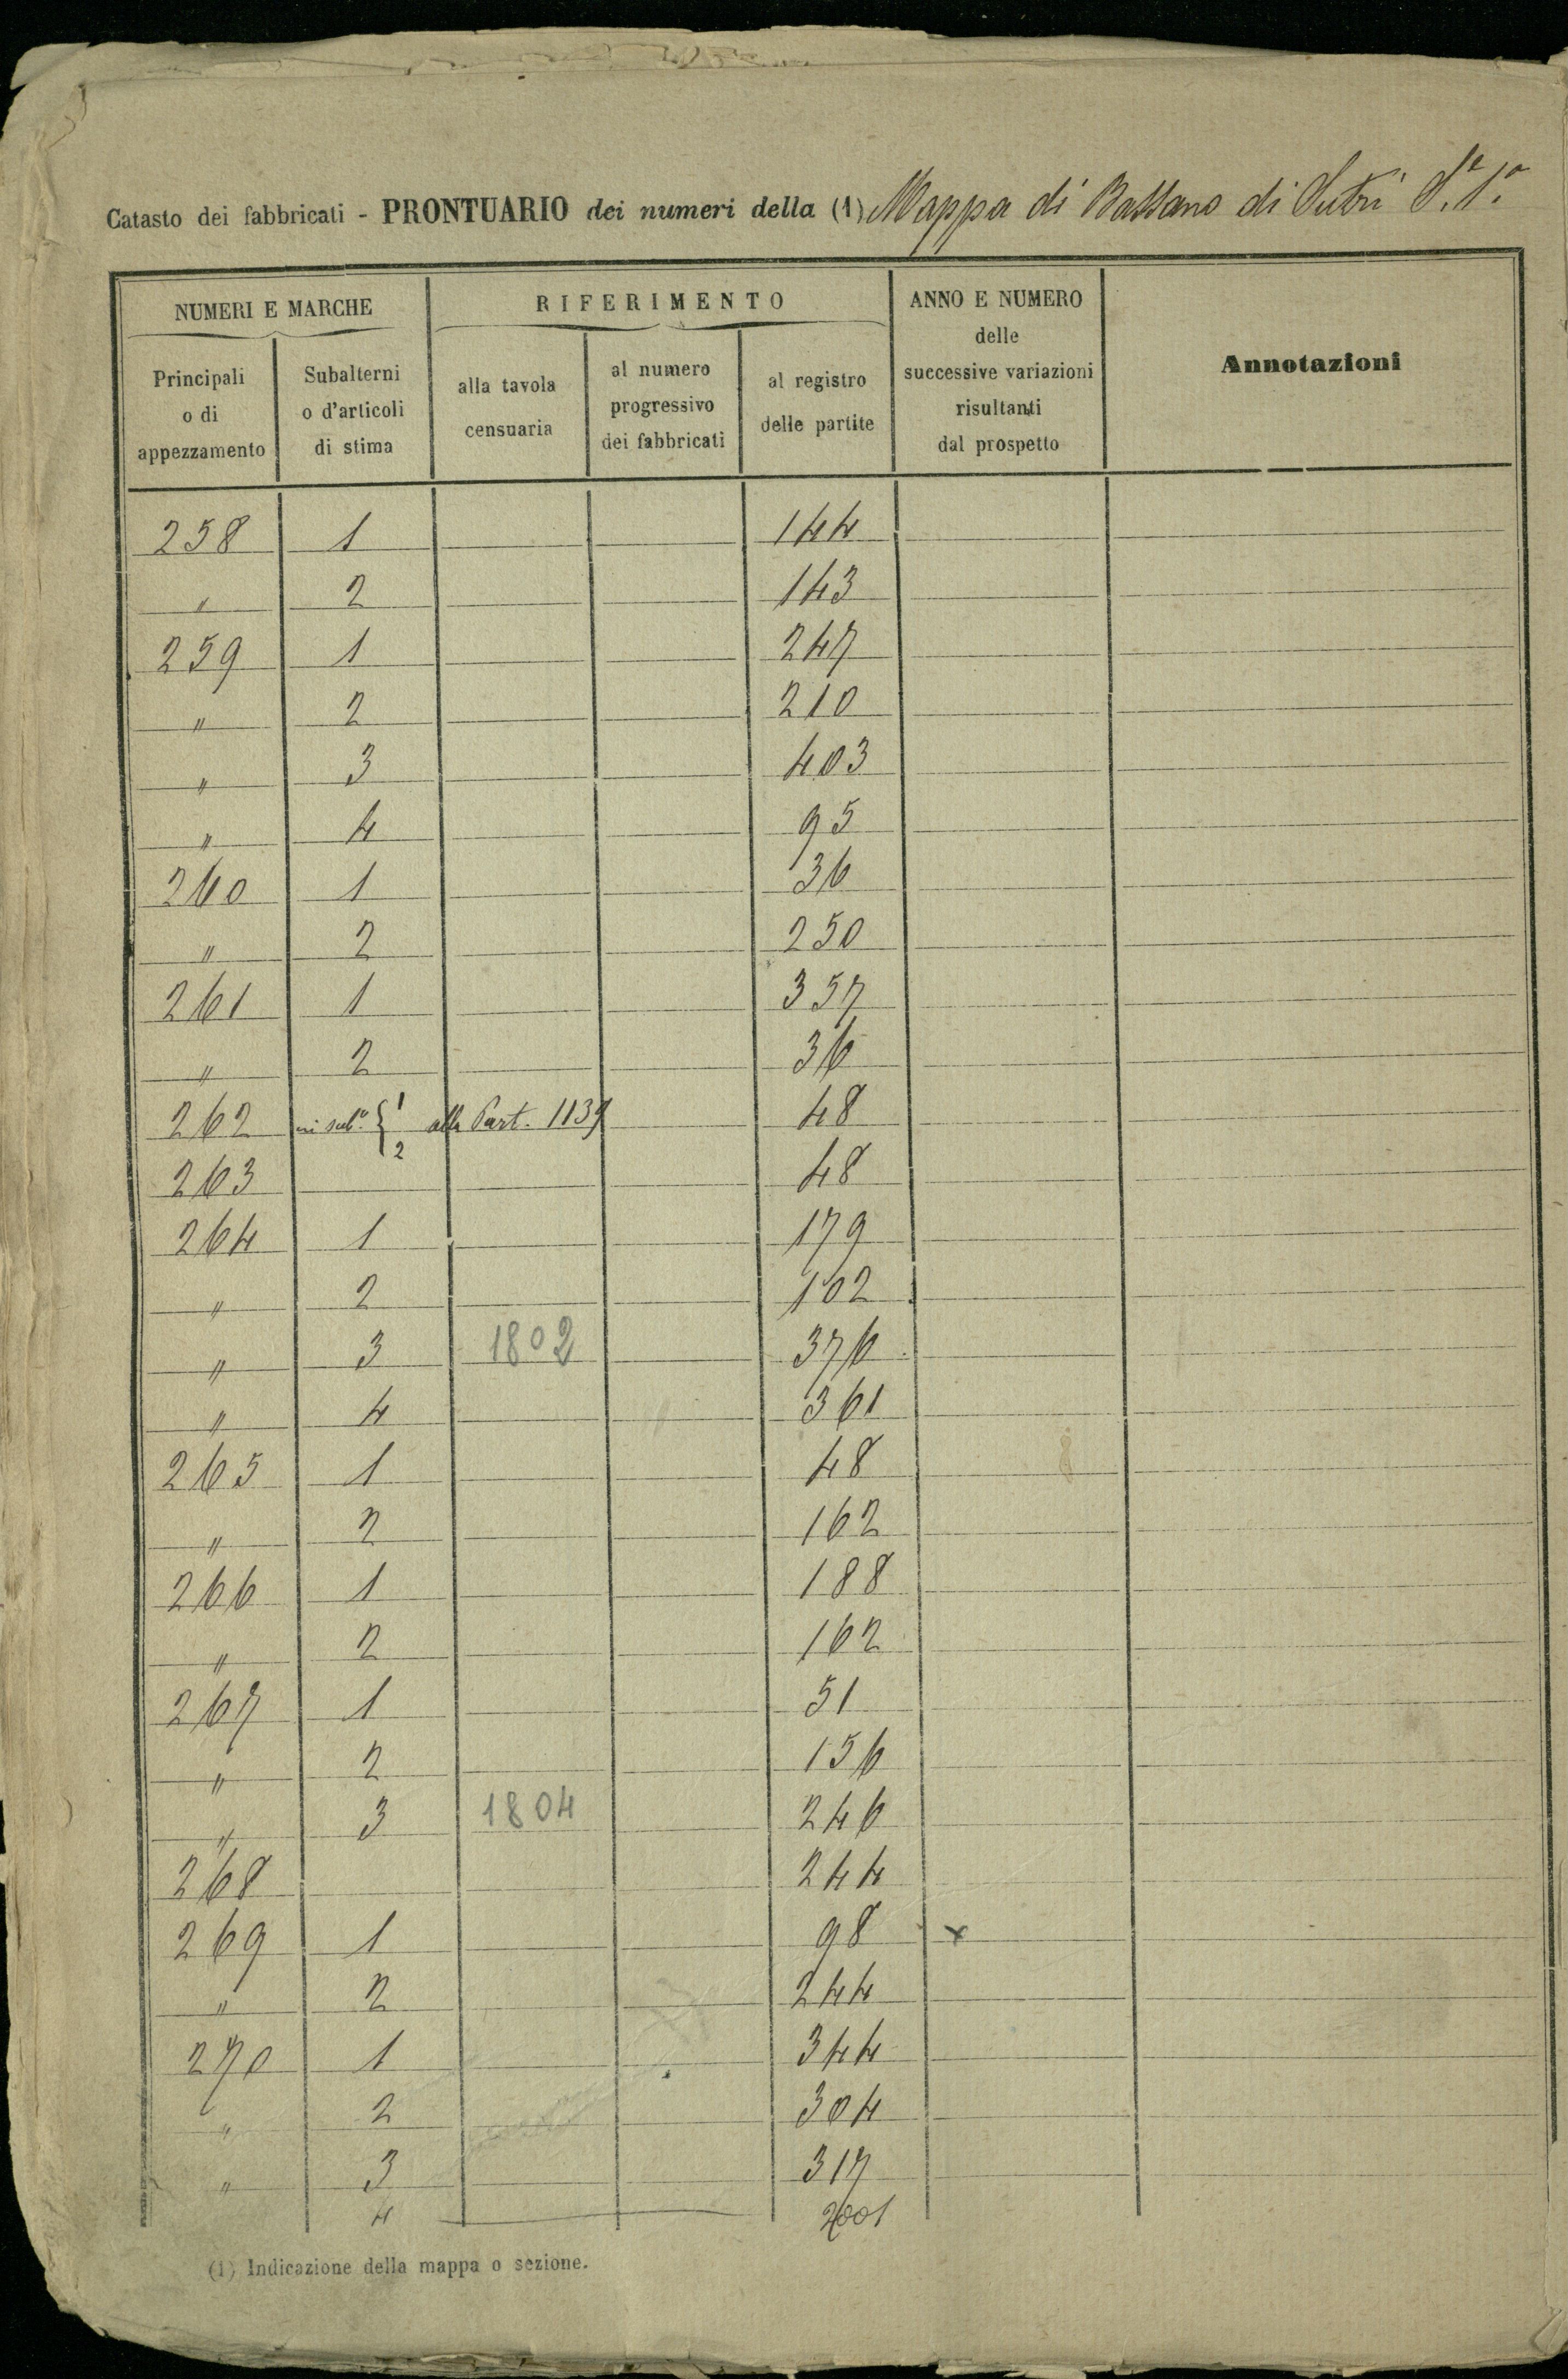 Catasto dei fabbricati - PRONTUARIO dei numeri della (1) Mappa di Bassano di Sutri S.e 1.a
NUMERI E MARCHE
RIFERIMENTO
ANNO E NUMERO
delle
successive variazioni
risultanti
dal prospetto
Annotazioni
Principali
o di
appezzamento
Subalterni
o d'articoli
di stima
alla tavola
censuaria
al numero
progressivo
dei fabbricati
al registro
delle partite
258 1 144
" 2 143
259 1 247
" 2 210
" 3 403
" 4 95
260 1 36
" 2 250
261 1 357
" 2 36
262 in sub.i { 1 2 alla Part. 1139 48
263 48
264 1 179
" 2 102
" 3 1802 376
" 4 361
265 1 48
" 2 162
266 1 188
" 2 162
267 1 51
" 2 156
" 3 1804 246
268 244
269 1 98 x
" 2 244
270 1 344
" 2 304
" 3 317
4 2001
(1) Indicazione della mappa o sezione.